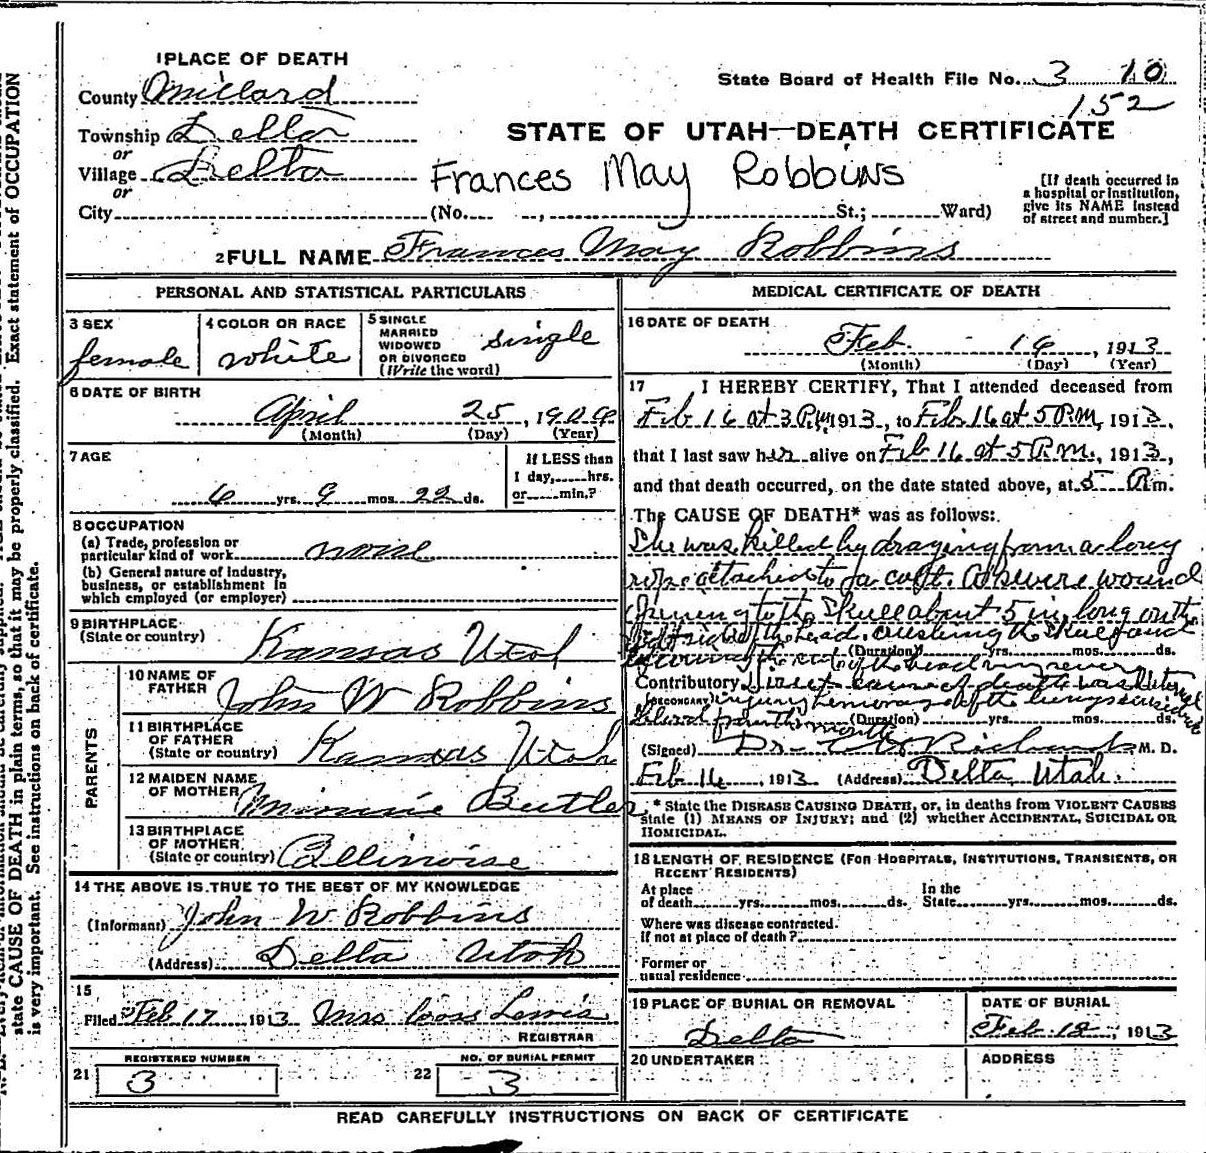 1 PLACE OF DEATH
State Board of Health File No. 3 10
County Millard
152
Township Delta
STATE OF UTAH—DEATH CERTIFICATE
or
Village Delta
Frances May Robbins
or
City (No. , St.; Ward)
[If death occurred in
a hospital or institution,
give its NAME instead
of street and number.]
2 FULL NAME Frances May Robbins
PERSONAL AND STATISTICAL PARTICULARS
3 SEX
female
4 COLOR OR RACE
white
5 SINGLE
MARRIED
WIDOWED
OR DIVORCED
(Write the word)
single
6 DATE OF BIRTH
April 25, 190
(Month) (Day) (Year)
7 AGE
6 yrs. 9 mos. 22 ds.
If LESS than
1 day, hrs.
or min.?
8 OCCUPATION
(a) Trade, profession or
particular kind of work none
(b) General nature of industry,
business, or establishment in
which employed (or employer)
9 BIRTHPLACE
(State or country) Kansas Utah
PARENTS
10 NAME OF
FATHER John W Robbins
11 BIRTHPLACE
OF FATHER
(State or country) Kansas Utah
12 MAIDEN NAME
OF MOTHER Minnie Butler
13 BIRTHPLACE
OF MOTHER
(State or country) Illinoise
14 THE ABOVE IS TRUE TO THE BEST OF MY KNOWLEDGE
(Informant) John W Robbins
(Address) Delta Utah
15
Filed Feb 17 1913 Mrs Lewis
REGISTRAR
REGISTERED NUMBER
21 3
NO. OF BURIAL PERMIT
22 3
MEDICAL CERTIFICATE OF DEATH
16 DATE OF DEATH
Feb. 16, 1913
(Month) (Day) (Year)
17 I HEREBY CERTIFY, That I attended deceased from
Feb 16 at 3 P.m, 1913, to Feb 16 at 5 P.m, 1913,
that I last saw her alive on Feb 16 at 5 P.m., 1913,
and that death occurred, on the date stated above, at 5 P.m.
The CAUSE OF DEATH* was as follows:
She was killed by draging from a long
rope attached to a colt. A severe wound
to the skull about 5 in long on the
side of the head. crushing the skull and
the of the head
(Duration) yrs. mos. ds.
Contributory Direct cause of death was
(SECONDARY) injury hemorage of the lungs
from the mouth (Duration) yrs. mos. ds.
(Signed) Dr. Richards M. D.
Feb 16, 1913 (Address) Delta Utah.
* State the DISEASE CAUSING DEATH, or, in deaths from VIOLENT CAUSES
state (1) MEANS OF INJURY; and (2) whether ACCIDENTAL, SUICIDAL OR
HOMICIDAL.
18 LENGTH OF RESIDENCE (FOR HOSPITALS, INSTITUTIONS, TRANSIENTS, OR
RECENT RESIDENTS)
At place
of death yrs. mos. ds.
In the
State yrs. mos. ds.
Where was disease contracted.
If not at place of death?
Former or
usual residence
19 PLACE OF BURIAL OR REMOVAL
Delta
DATE OF BURIAL
Feb 18, 1913
20 UNDERTAKER
ADDRESS
READ CAREFULLY INSTRUCTIONS ON BACK OF CERTIFICATE
state CAUSE OF DEATH in plain terms, so that it may be properly classified. Exact statement of OCCUPATION
is very important. See instructions on back of certificate.